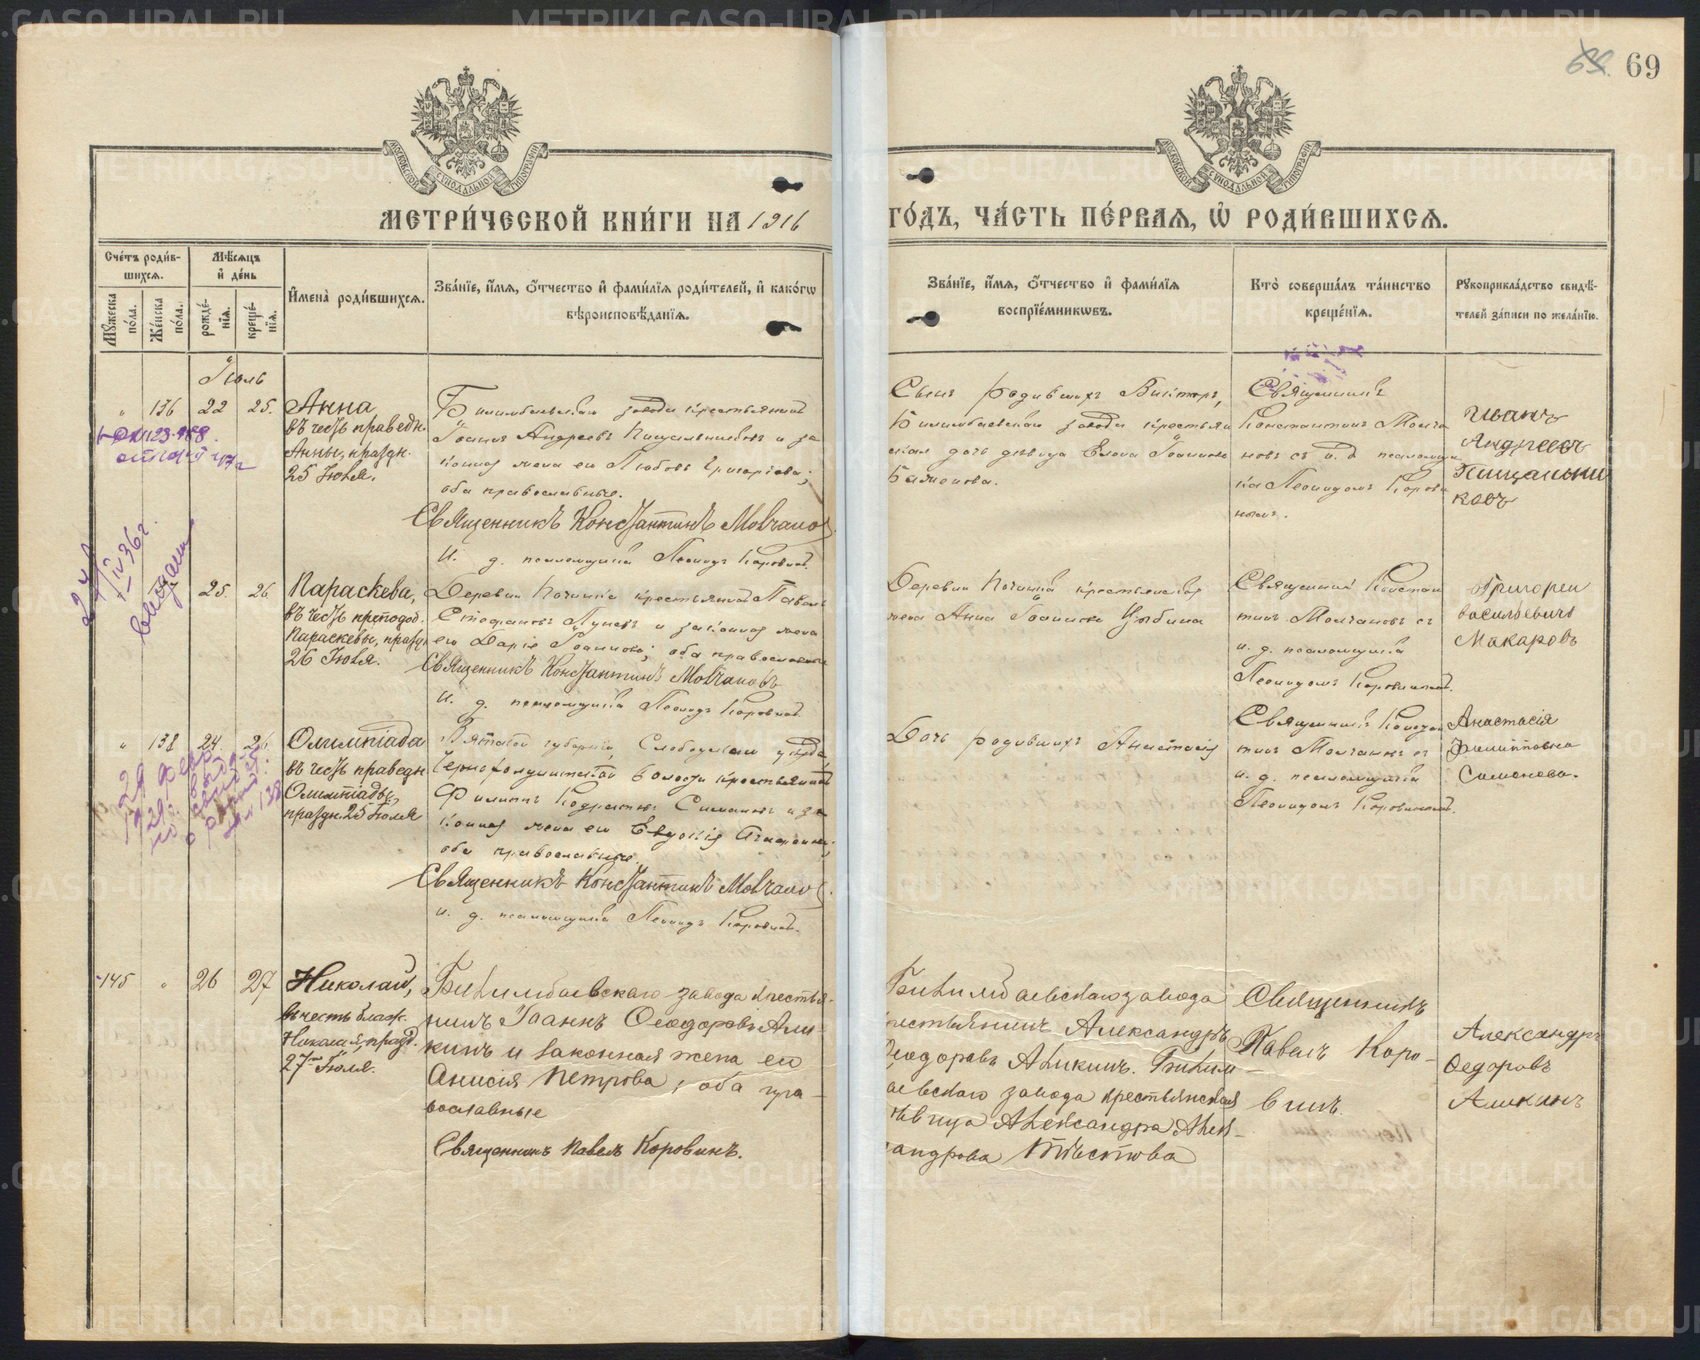 69
МЕТРИ́ЧЕСКОЙ КНИ́ГИ НА 1916
ГО́ДЪ, ЧА́СТЬ ПЕ́РВАѦ, Ѡ҆ РОДИ́ВШИХСѦ.
Сче́тъ роди́в-
шихсѧ.
Мꙋ́жеска
по́ла.
Же́нска
по́ла.
Мѣ́сѧцъ
и҆ де́нь
рожде́-
нїѧ.
креще́-
нїѧ.
И҆мена̀ роди́вшихсѧ.
Зва́нїе, и҆́мѧ, ѻ҆́тчество и҆ фами́лїѧ роди́телей, и҆ како́гѡ
вѣроисповѣ́данїѧ.
Зва́нїе, и҆́мѧ, ѻ҆́тчество и҆ фами́лїѧ
воспрїе́мникѡвъ.
Кто̀ соверша́лъ та́инство
креще́нїѧ.
Рꙋкоприкла́дство свидѣ́-
телей за́писи по жела́нїю.
Іюль
" 136 22 25.
Анна,
въ честь праведн.
Анны, праздн.
25 Іюля.
Билимбаевскаго завода крестьянинъ
Іоаннъ Андреевъ Пищальниковъ и за
конная жена его Любовь Григорьева;
оба православные.
Священникъ Константинъ Молчановъ
И. д. псаломщика Леонидъ Коровинъ
Сынъ родившихъ Викторъ,
Билимбаевскаго завода крестьян
ская дочь девица Елена Іоаннова
Баженова.
Священникъ
Константинъ Молча
новъ съ и. д. псаломщи
ка Леонидомъ Корови
нымъ.
Иванъ
Андреевъ
Пищальни
ковъ
25. 26
Параскева,
въ честь преподоб.
Параскевы, праздн.
26 Іюля.
Деревни Починка крестьянинъ Павелъ
Стефановъ Луневъ и законная жена
его Дарія Іоаннова; оба православные
Священникъ Константинъ Молчановъ
И. д. псаломщика Леонидъ Коровинъ
Деревни Починка крестьянская
жена Анна Іоаннова
Священникъ Констан
тинъ Молчановъ съ
и. д. псаломщика
Леонидомъ Коровинымъ.
Григореи
васильевичъ
Макаровъ
" 138 24 26
Олимпіада
въ честь праведн
Олимпіады,
праздн. 25 Іюля
Вятской губерніи, Слободскаго уѣзда
волости крестьянинъ
Филиппъ Симоновъ и за
конная жена его Евдокія
оба православные.
Священникъ Константинъ Молчановъ
и. д. псаломщика Леонидъ Коровинъ
Дочь родившихъ Анастасія
Священникъ Констан
тинъ Молчановъ съ
и. д. псаломщика
Леонидомъ Коровинымъ.
Анастасія
Филиповна
Симонова.
145 " 26 27
Николай,
въ честь блаж.
Николая, празд.
27го Іюля.
Билимбаевскаго завода крестья-
нинъ Іоаннъ Ѳеодоровъ Али-
кинъ и законная жена его
Анисія Петрова, оба пра-
вославные
Священникъ Павелъ Коровинъ.
Билимбаевскаго завода
крестьянинъ Александръ
Ѳеодоровъ Аликинъ. Билим-
баевскаго завода крестьянская
дѣвица Александра Алек-
сандрова
Священникъ
Павелъ Коро-
винъ.
Александръ
Ѳедоровъ
Аликинъ
METRIKI.GASO-URAL.RU